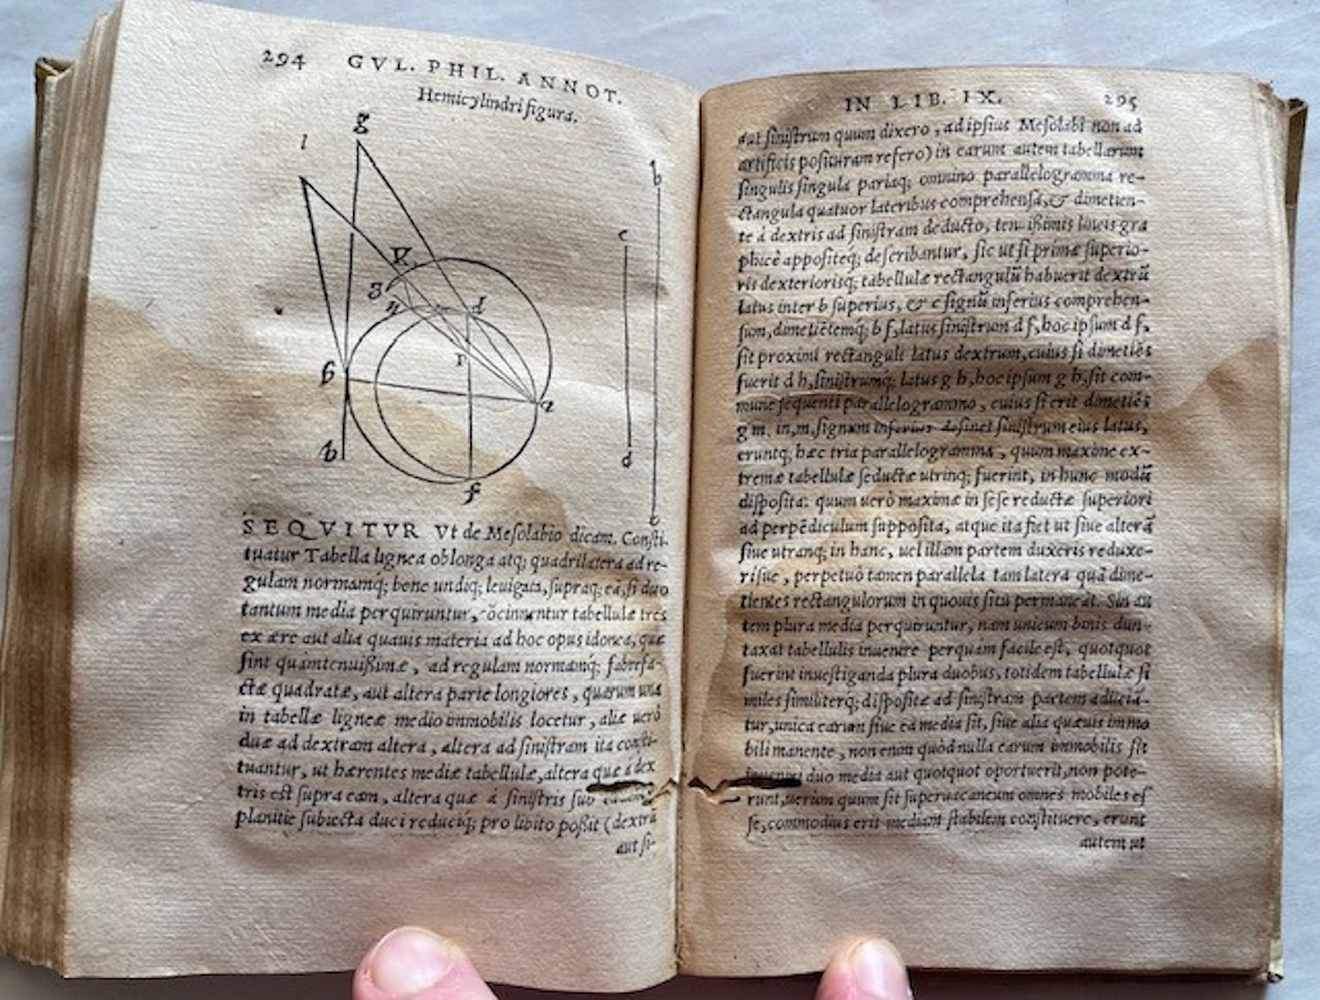 294 GVL. PHIL. ANNOT.
Hemicylindri figura.
g
l
b
c
V
3
4
d
r
6
a
b
d
f
c
SEQVITVR Vt de Mesolabio dicam. Consti-
tuatur Tabella lignea oblonga atq; quadrilatera ad re-
gulam normamq; bene undiq; leuigata, supraq; eā, si duo
tantum media perquiruntur, cōcinnentur tabellulæ tres
ex ære aut alia quauis materia ad hoc opus idonea, quæ
sint quàmtenuißimæ, ad regulam normamq́; fabrefa-
ctæ quadratæ, aut altera parte longiores, quarum una
in tabellæ ligneæ medio immobilis locetur, aliæ uerò
duæ ad dextram altera, altera ad sinistram ita consti-
tuantur, ut hærentes mediæ tabellulæ, altera quæ à dex
tris est supra eam, altera quæ à sinistris sub
planitie subiecta duci reduciq́; pro libito poßit (dextrū
aut si-
IN LIB. IX. 295
aut sinistrum quum dixero, ad ipsius Mesolabi non ad
artificis posituram refero) in earum autem tabellarum
singulis singula pariaq; omnino parallelogramma re-
ctangula quatuor lateribus comprehensa, & dimetien-
te á dextris ad sinistram deducto, tenuißimis lineis gra
phicè appositeq́; describantur, sic ut si primæ superio-
ris dexteriorisq; tabellulæ rectangulū habuerit dextrū
latus inter b superius, & c signū inferius comprehen-
sum, dimetiētemq; b f, latus sinistrum d f, hoc ipsum d f,
sit proximi rectanguli latus dextrum, cuius si dimetiēs
fuerit d h, sinistrumq; latus g h, hoc ipsum g h, sit com-
mune sequenti parallelogrammo, cuius si erit dimetiēs
g m, in, m, signum inferius desinet sinistrum eius latus,
eruntq́; hæc tria parallelogramma, quum maxime ex-
tremæ tabellulæ seductæ utrinq; fuerint, in hunc modū
disposita: quum uerò maximæ in sese reductæ superiori
ad perpēdiculum supposita, atque ita fiet ut siue alterā
siue utranq; in hanc, uel illam partem duxeris reduxe-
risue, perpetuò tamen parallela tam latera quā dime-
tientes rectangulorum in quouis situ permaneāt. Sin au
tem plura media perquiruntur, nam unicum binis dun-
taxat tabellulis inuenire perquam facile est, quotquot
fuerint inuestiganda plura duobus, totidem tabellulæ si
miles similiterq́; dispositæ ad sinistram partem adiiciā-
tur, unica earum siue ea media sit, siue alia quæuis immo
bili manente, non enim quòd nulla earum immobilis sit
inueniri duo media aut quotquot oportuerit, non pote-
runt, uerùm quum sit superuacaneum omnes mobiles es
se, commodius erit mediam stabilem constituere, erunt
autem ut